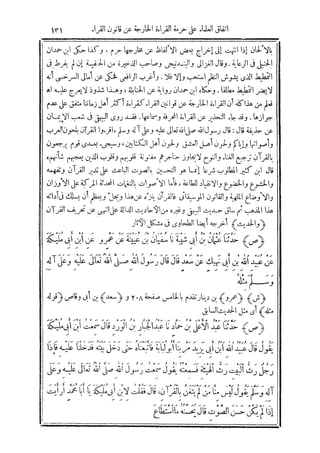 اتفاق العلماء على حرمة القراءة الخارجة عن قانون القراء ١٣١
بالألحان إذا انتهت إلى إخراج بعض الألفاظ عن مخارجها حرم ، وكذا حكى ابن حمدان
الحنبلى فى الرعاية . وقال الغزالى والبندنيجى وصاحب الذخيرة من الحنفية إن لم يفرط فى
التمطيط الذى يشوش النظم استحب وإلا فلا . وأغرب الرافعى فحكى عن أمالى السرخسى أنه
لا يضر التمطيط مطلقا . وحكاه ابن حمدان رواية عن الحنابلة ، وهذا شذوذ لا يعرج عليه اهـ
فعلم من هذا كله أن القراءة الخارجة عن قوانين القراء كقراءة أكثر أهل زماننا متفق على عدم
جوازها . وقد جاء التحذير عن القراءة المحرفة وسماعها . فقد روى البيهقى فى شعب الإيمان
عن حذيفة قال : قال رسول الله صلى الله تعالى عليه وعلى آله وسلم اقرءوا القرآن بلحون العرب
وأصواتها وإياكم ولحون أهل العشق ولحون أهل الكتابين ، وسيجىء بعدى قوم يرجعون
بالقرآن ترجيع الغناء والنوح لا يجاوز حناجرهم مفتونة قلوبهم وقلوب الذين يعجبهم شأنهم .
قال ابن كثير المطلوب شرعا إنما هو التحسين بالصوت الباعث على تدبر القرآن وتفهمه
والخشوع والخضوع والانقياد للطاعة ، فأما الأصوات بالنغمات المحدثة المركبة على الأوزان
والأوضاع الملهية والقانون الموسيقائى فالقرآن ينزه عن هذا ويجل ويعظم أن يسلك فى أدائه
هذا المذهب ثم ساق حديث البيهقى وغيره من الأحاديث الدالة على النهى عن تحريف القرآن
﴿والحديث﴾ أخرجه أيضا الطحاوى فى مشكل الآثار
﴿ص﴾ حَدَّثَنَا عُثْمَانُ بْنُ أَبِي شَيْبَةَ نَا سُفْيَانُ بْنُ عُيَيْنَةَ عَنْ عَمْرٍو عَنِ ابْنِ أَبِي مُلَيْكَةَ
عَنْ عُبَيْدِ اللهِ بْنِ أَبِي نَهِيكٍ عَنْ سَعْدٍ قَالَ قَالَ رَسُولُ اللهِ صَلَّى اللهُ تَعَالَى عَلَيْهِ وَعَلَى آلِهِ
وَسَلَّمَ مِثْلَهُ
﴿ش﴾ ﴿عمرو﴾ بن دينار تقدم بالخامس صفحة ٢٠٨ و ﴿سعد﴾ بن أبى وقاص ﴿قوله
مثله﴾ أى مثل الحديث السابق
﴿ص﴾ حَدَّثَنَا عَبْدُ الْأَعْلَى بْنُ حَمَّادٍ نَا عَبْدُ الْجَبَّارِ بْنُ الْوَرْدِ قَالَ سَمِعْتُ ابْنَ أَبِي مُلَيْكَةَ
يَقُولُ قَالَ عُبَيْدُ اللهِ بْنُ أَبِي يَزِيدَ مَرَّ بِنَا أَبُو لُبَابَةَ فَاتَّبَعْنَاهُ حَتَّى دَخَلَ بَيْتَهُ فَدَخَلْنَا عَلَيْهِ فَإِذَا
رَجُلٌ رَثُّ الْبَيْتِ رَثُّ الْهَيْئَةِ فَسَمِعْتُهُ يَقُولُ سَمِعْتُ رَسُولَ اللهِ صَلَّى اللهُ تَعَالَى عَلَيْهِ وَعَلَى
آلِهِ وَسَلَّمَ يَقُولُ لَيْسَ مِنَّا مَنْ لَمْ يَتَغَنَّ بِالْقُرْآنِ، قَالَ فَقُلْتُ لِابْنِ أَبِي مُلَيْكَةَ يَا أَبَا مُحَمَّدٍ أَرَأَيْتَ
إِذَا لَمْ يَكُنْ حَسَنَ الصَّوْتِ قَالَ يُحَسِّنُهُ مَا اسْتَطَاعَ